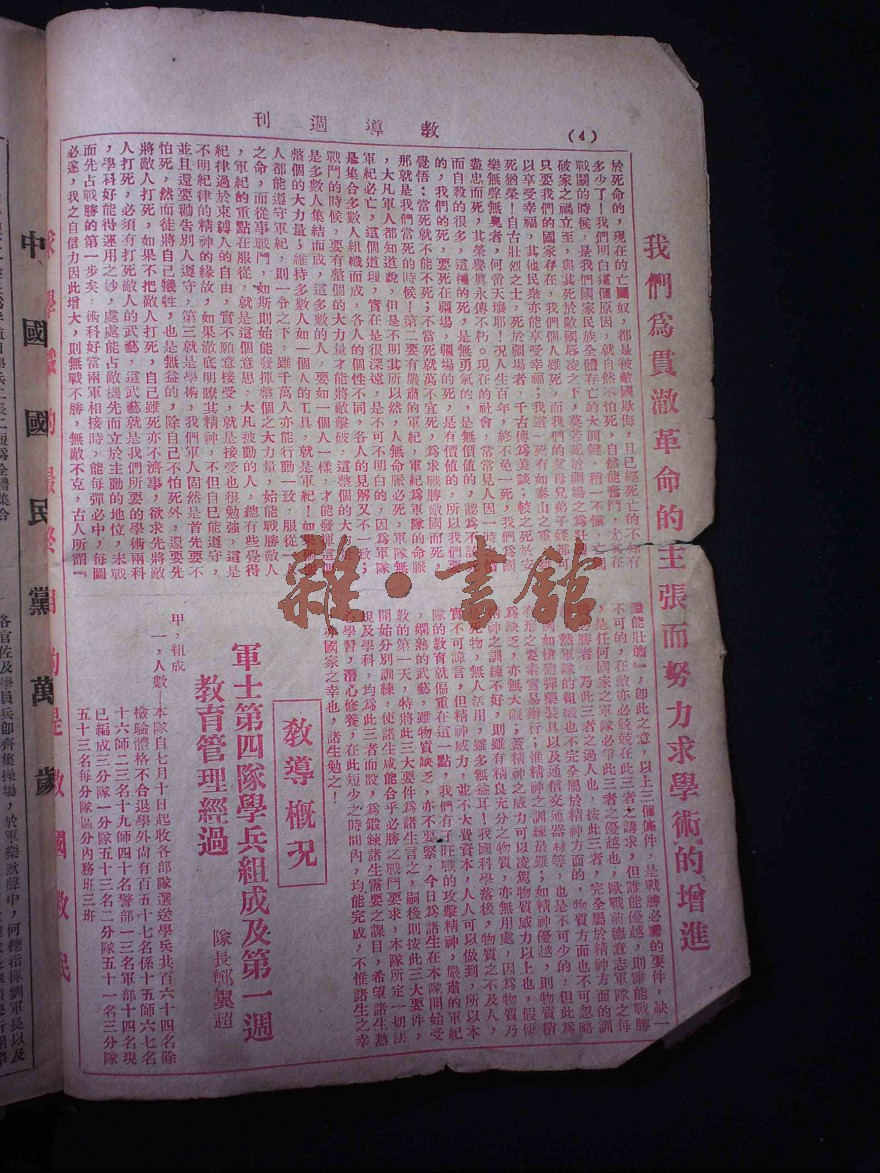 (4)
教導週刊
我們爲貫澈革命的主張而努力求學術的增進
於死命的，現在的亡國奴，都是被敵國欺侮，且已經死亡的不知有
多少了！我們明白這個原因，就自然不怕死，自然能奮鬥，尤其在
戰鬭的時候，是我們國家民族全體存亡的大關鍵，稍一不愼，亡國
破家之禍立至，與其死於敵國辱凌之下，莫若死於疆場之爲壯
只要我們的國家存在，我們個人雖死，而我們的父母兄弟子姪都可
以享受幸福，其他民衆亦能享受幸福；我這一死有如泰山之重，雖
死猶榮！自古壯烈之士，死於疆場者，千古傳爲美談；較之死於安
樂無聲無臭者，何啻天壤耶！況人生百年，終不免一死，我們爲國
盡忠而死，其榮譽眞永傳不朽。現在的社會，常常見人因一時
而自殺的很多，這種的死，是無勇氣的，是無價値的，認爲不該死
的，我們的死，要死在疆場，疆場的死，是有價値的，所以我們要
覺悟：當死就不能不死；不當死就萬不宜死，爲求戰勝敵國而死，
那就是我們當死的時候！第二要有嚴肅的軍紀，軍紀爲軍隊的命脈
，大凡軍人都知道說，但是不明其所以然，人無命脈必死，軍隊無
軍紀必亡，這個道理，實在是很深遠，是不可不明白的，因爲軍隊
是集合多數人組織而成，各人的個性不同，各人的見解又不一致；
戰鬥的時候，要有整個的大力量才能將敵擊破，這整個的大
是多數人集結而成，這多數的人，要如一個人一樣，才能發揮這個
整個的大力量；維持多數人如一個人的工具，就是軍紀！如果
人都能遵守軍紀，則一令之下，雖千萬人亦能行動一致，服從
之命，而從事戰鬥，如斯則始能發揮整個之大力量，始能戰勝敵人
，軍紀的重點在服從，就是這個意思，大凡被動的人，總有些覺得
紀律過於束縛人的自由，實不願意接受，就是接受也很勉強，這是
不明紀律的精神的緣故，如果澈底明瞭其精神，不但自己能遵守，
並且還要勸告別人遵守，第三就是學術，我們軍人固然是首先要不
怕死，然而徒將自己犧牲，也是無益的，除自己不怕死外，還要先
將敵人打死，如果不把敵人打死，自己雖死亦不濟事，欲求先將敵
人打死，必須有打死敵人的武藝，這武藝就是我們所要的學術兩科
，學科好能得運用之妙，處處能占敵機先而立於主動的地位，未戰
而先占戰勝的第一步矣，術科好當兩軍相接時，能每彈必中，每圖
必遂，我之自信力因此增大，則無戰不勝，無敵不克，古人所謂『
能壯膽』，卽此之意，以上三個條件，是戰勝必需的要件，缺一
不可的，在敵亦必兢兢在此三者之講求，但誰能優越，則誰能戰勝
，是任何國家之軍隊必爭此三者之優越也，歐戰前德意志軍隊之每
戰勝者，乃此三者之過人也，按此三者，完全屬於精神方面的訓
然軍隊的組織也不完全屬於精神方面的，物質方面也不可忽略
如槍砲彈藥裝具以及通信交通器材等，也是不可少的，但此爲
有形之要素實易辦行；惟精神之訓練最難；如精神優越，則物質稍
爲缺乏，亦無大礙；蓋精神之威力可以凌駕物質威力以上也，假使
精神之訓練不好，則雖有精良充分之物質，亦無用處，因爲物質乃
死物，無人活用，雖多無益耳！我國科學落後，物質之不及人，
實不可諱言，但精神威力，並不大費資本，人人可以做到，所以本
隊的教育就偏重在這一點，我們有了旺盛的攻擊精神，嚴肅的軍紀
，嫻熟的武藝，雖物質缺乏，亦不要緊，今日爲諸生在本隊開始受
敎的第一天，特將此三大要件爲諸生言之，嗣後則按此三大要件，
開始分別訓練，使諸生咸能合乎必勝之戰鬥要求，本隊所定一切法
規及學科，均爲此三者而設，爲鍛鍊諸生需要之課目，希望諸生熱
學習，潛心修養，在此短少之時間內，均能完成，不惟諸生之幸
亦國家之幸也，諸生勉之！
敎導槪况
軍士第四隊學兵組成及第一週
敎育管理經過
隊長鄧翼超
甲，組成
一，人數－本隊自七月十日起收各部隊選送學兵共百六十四名除
檢驗體格不合退學外尙有百五十七名係十五師六七名
十六師二三名十九師四十名警部一三名軍部十四名現
已編成三分隊一分隊五十三名二分隊五十一名三分隊
五十三名每分隊區分內務班三班
求學識的最終目的是救國救民
中國國民黨萬歲
各官佐及學員兵卽齊集操場，於軍樂歡聲中，何總指揮劉軍長以及